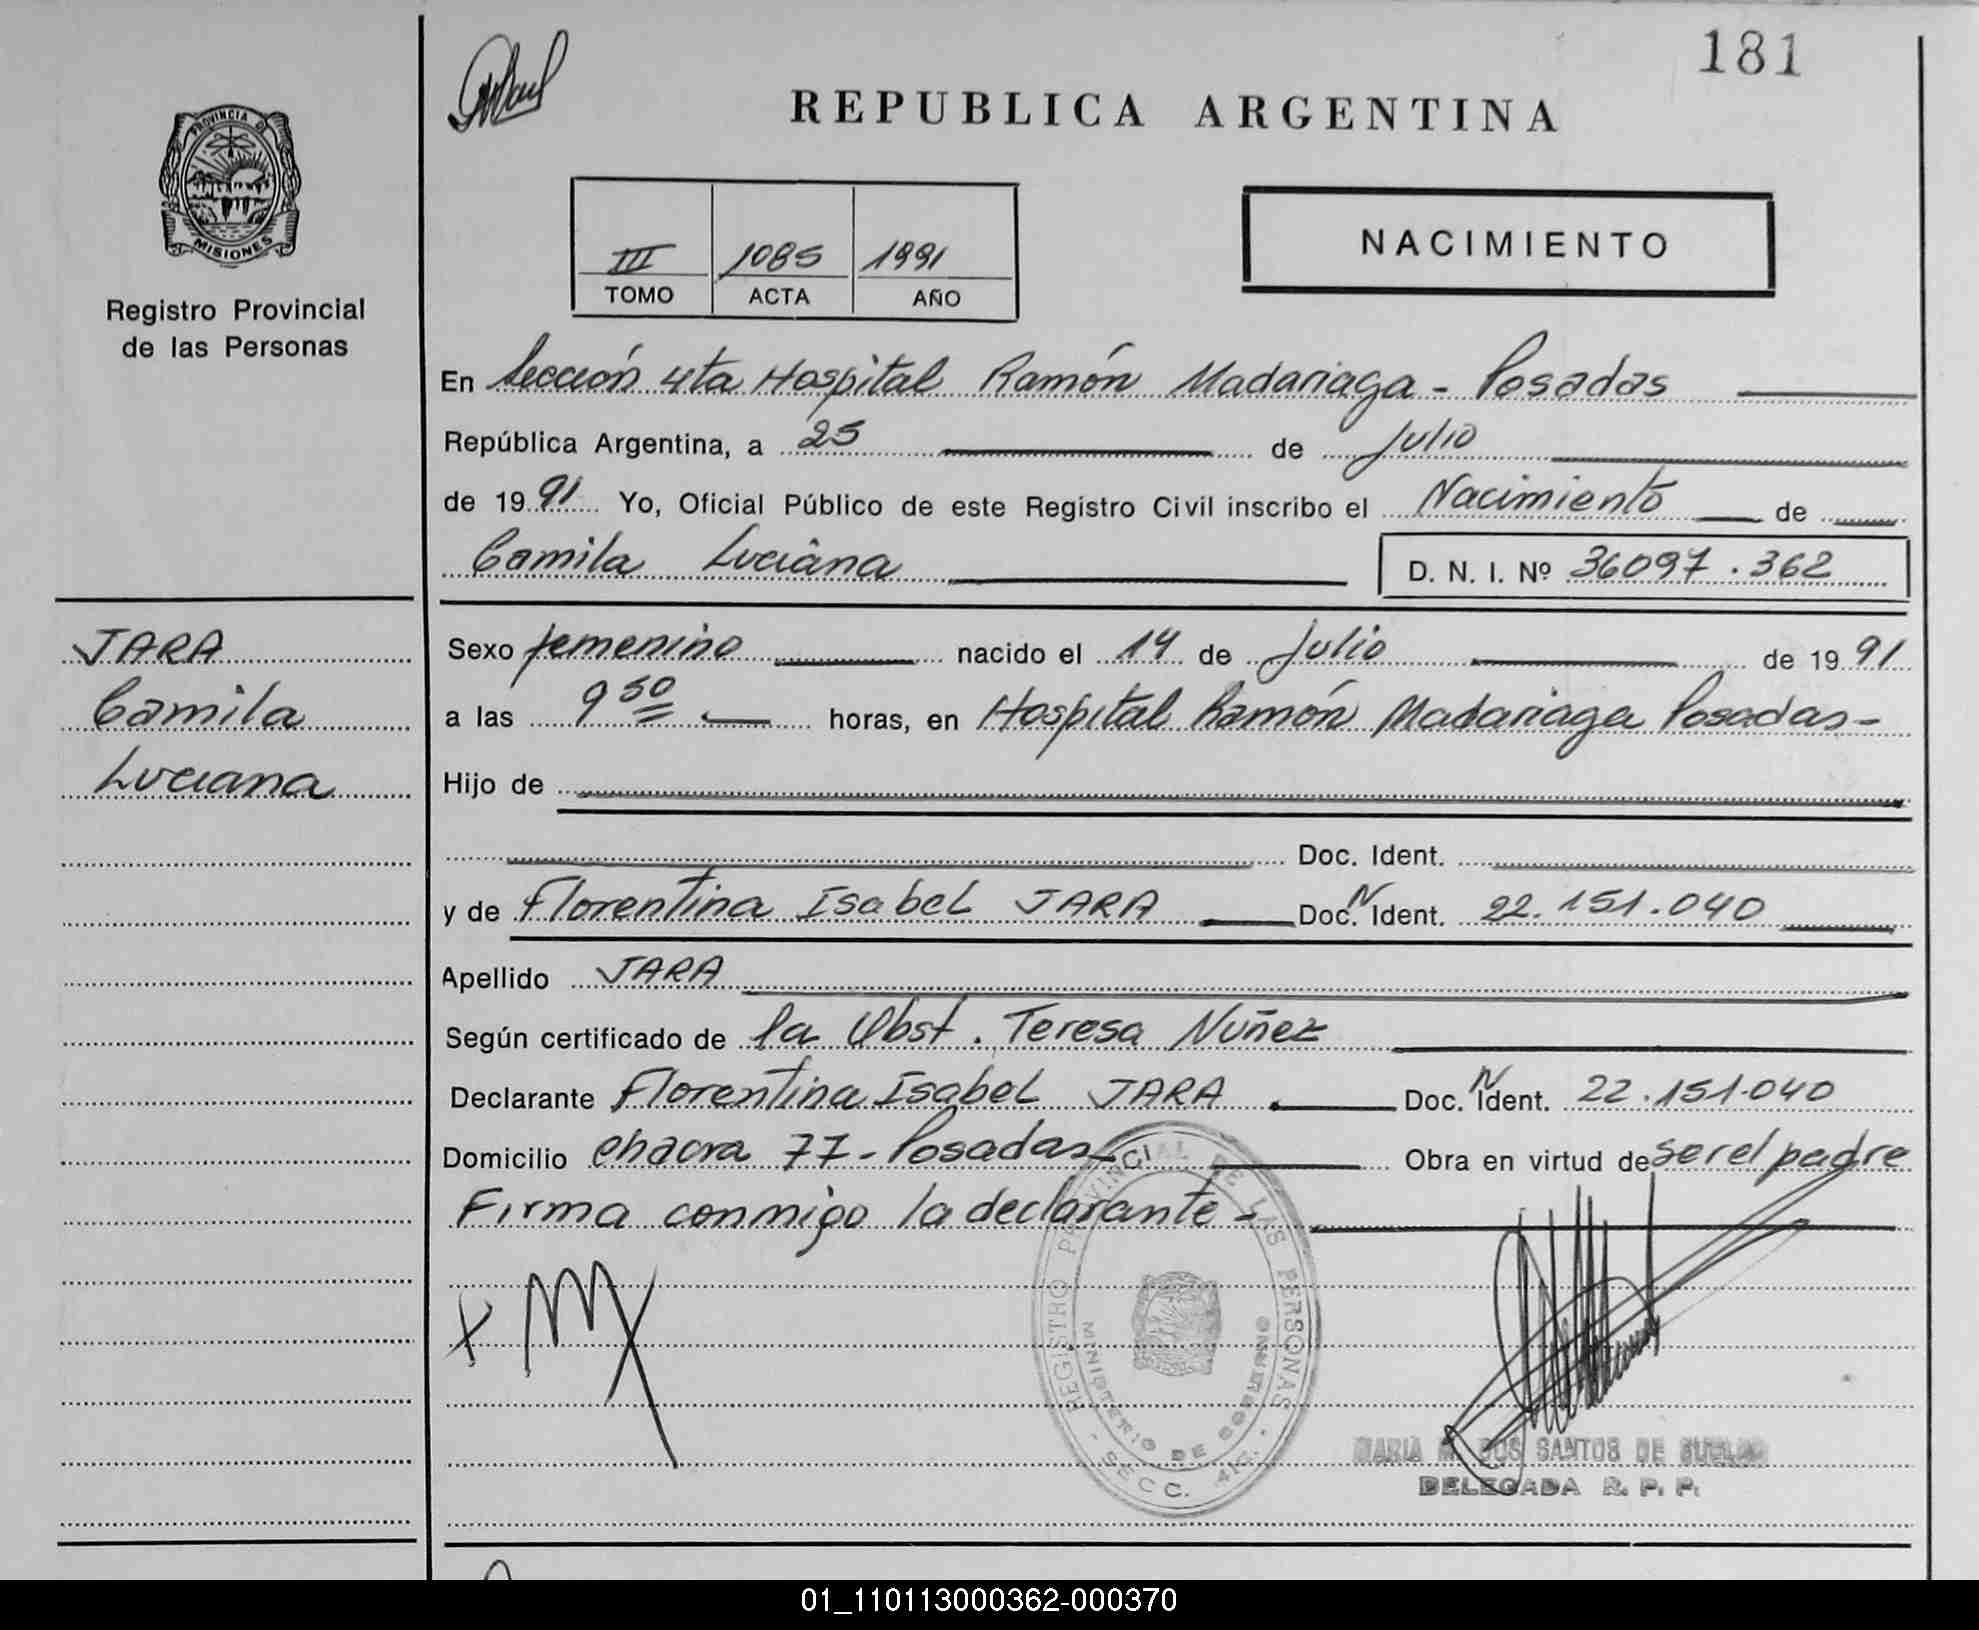 181
REPUBLICA ARGENTINA
PROVINCIA DE
MISIONES
Registro Provincial
de las Personas
III 1085 1991
TOMO ACTA AÑO
NACIMIENTO
En Sección 4ta Hospital Ramón Madariaga - Posadas
República Argentina, a 25 de Julio
de 1991 Yo, Oficial Público de este Registro Civil inscribo el Nacimiento de
Camila Luciana D. N. I. Nº 36097.362
JARA
Camila
Luciana
Sexo femenino nacido el 14 de Julio de 1991
a las 9 50 horas, en Hospital Ramón Madariaga Posadas-
Hijo de
Doc. Ident.
y de Florentina Isabel JARA Doc. N Ident. 22.151.040
Apellido JARA
Según certificado de la Obst. Teresa Nuñez
Declarante Florentina Isabel JARA Doc. N Ident. 22.151.040
Domicilio Chacra 77- Posadas- Obra en virtud de ser el padre
Firma conmigo la declarante-
REGISTRO PROVINCIAL DE LAS PERSONAS
MINISTERIO DE GOBIERNO
- SECC. 4ta. -
MARIA DOS SANTOS DE
DELEGADA R. P. P.
01_110113000362-000370